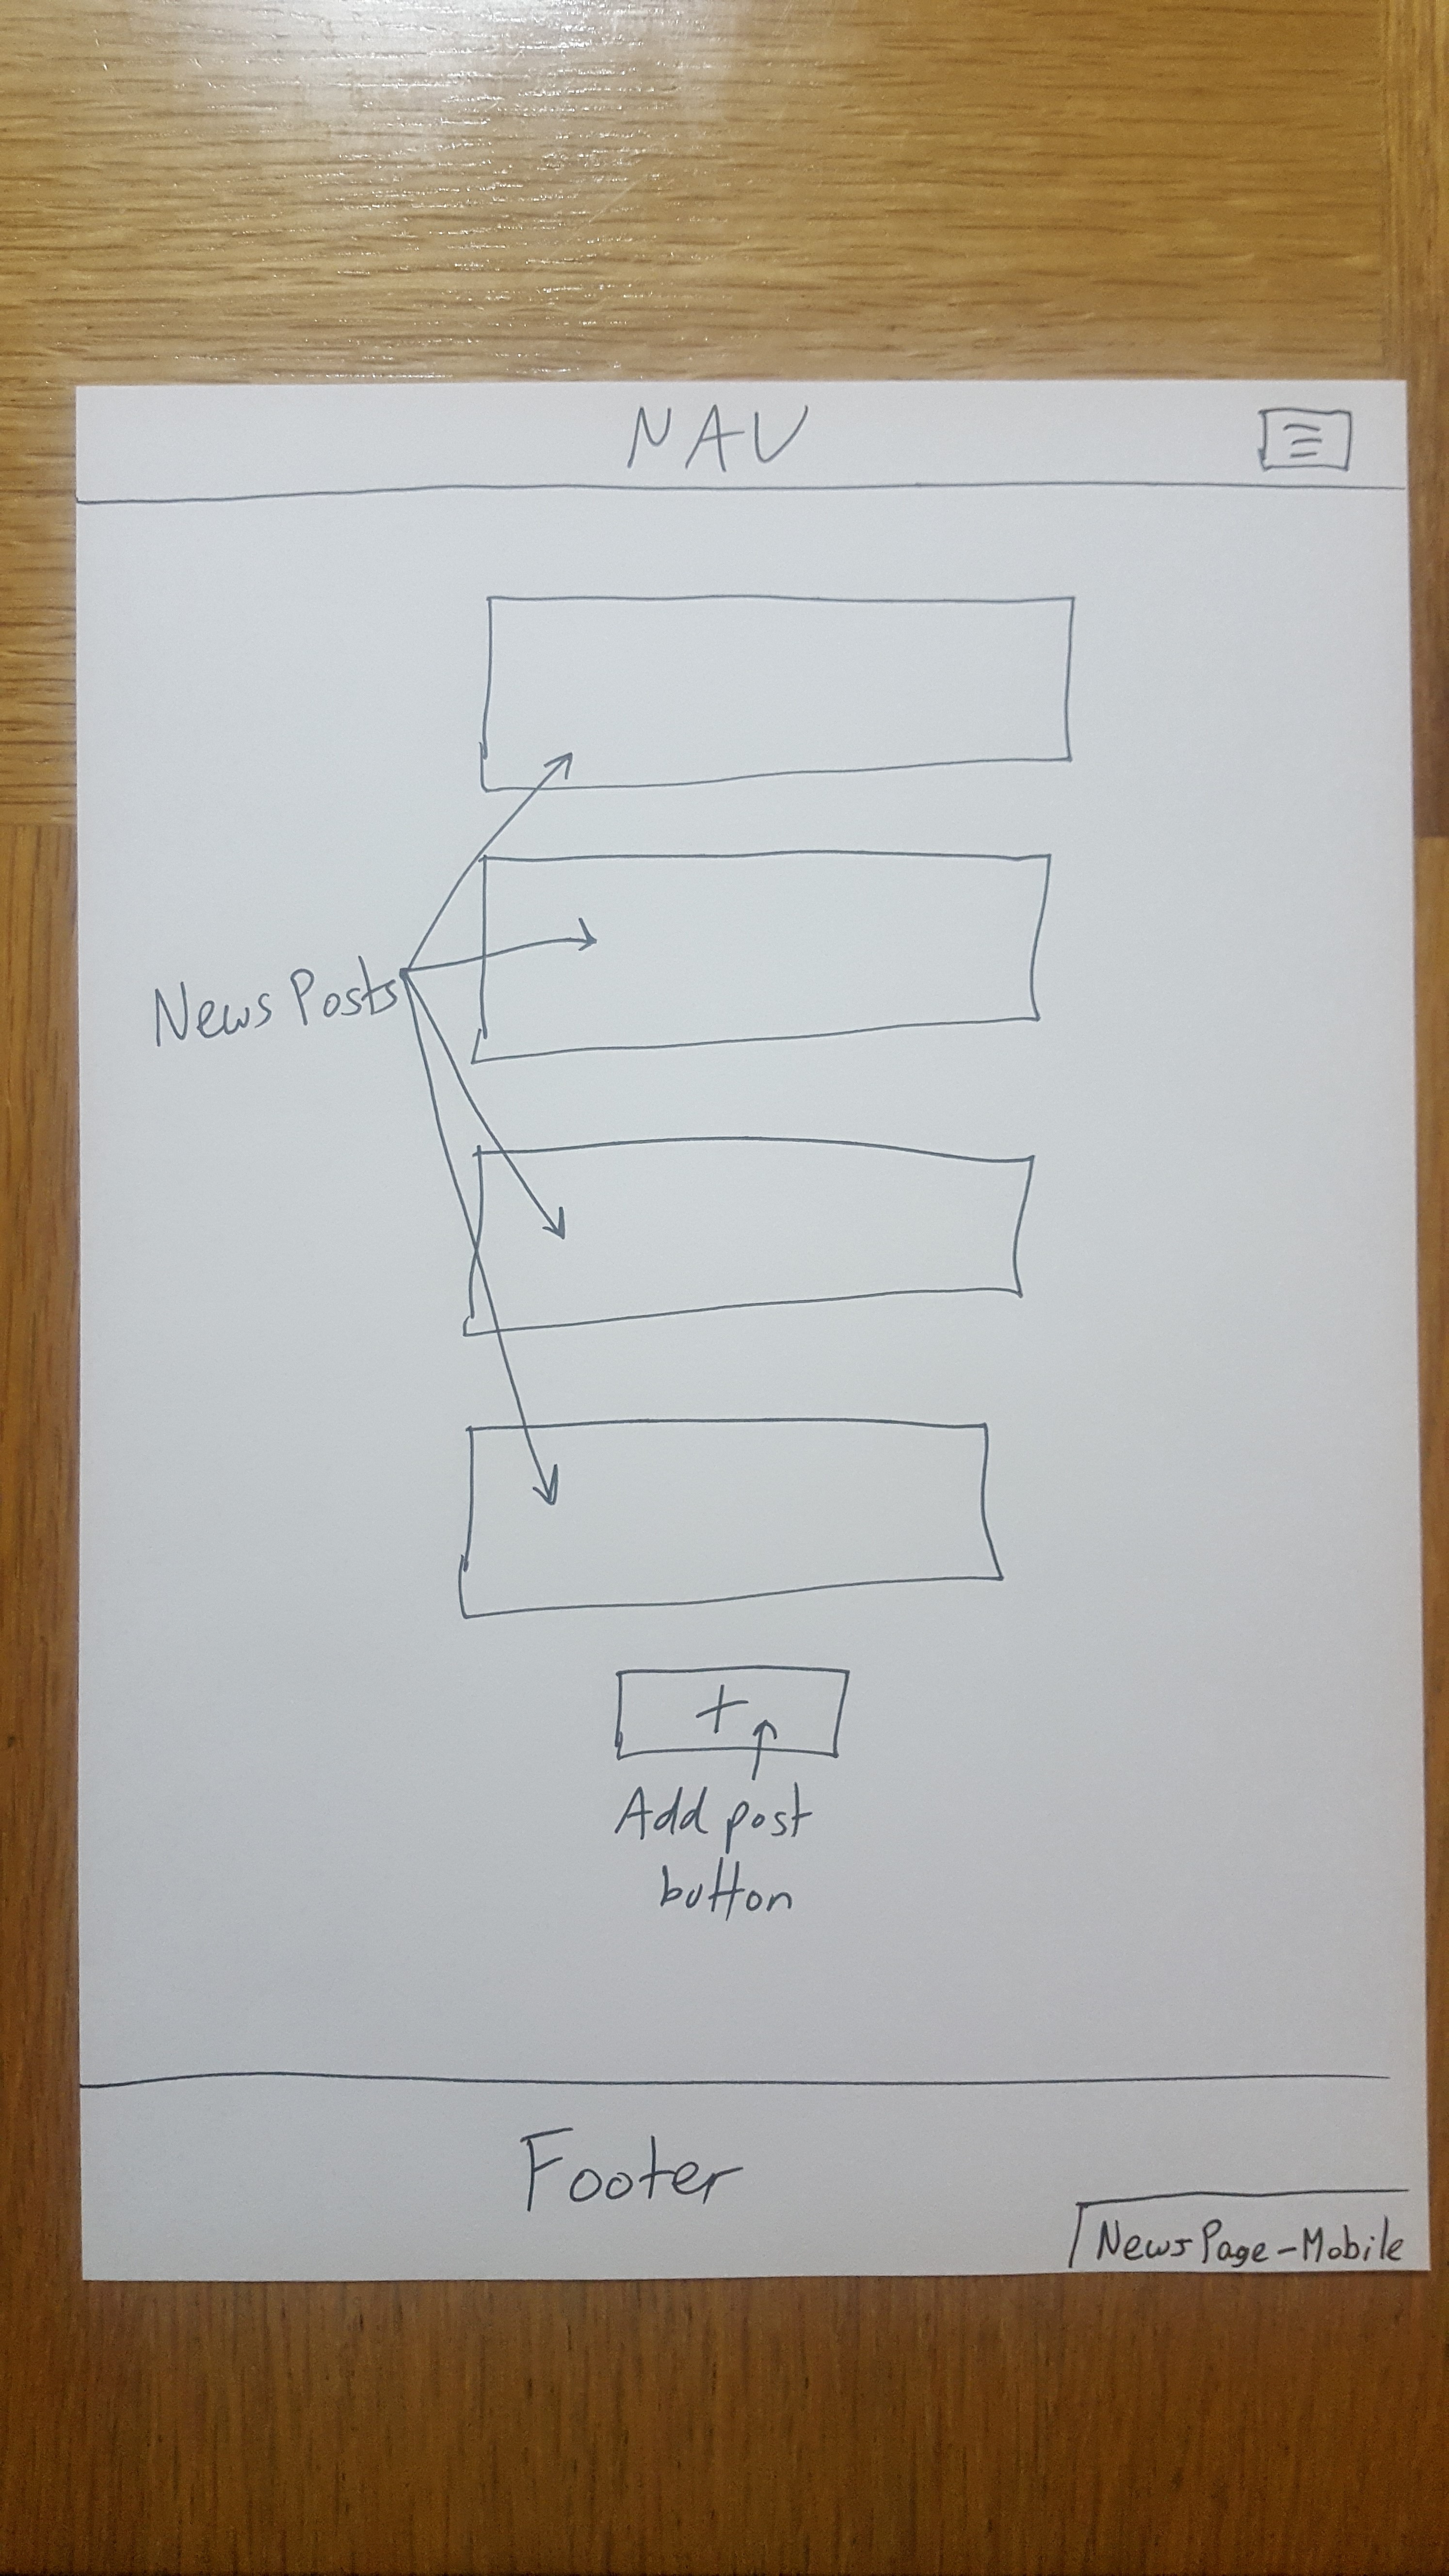 NAV
News Posts
+
Add post
button
Footer
News Page-Mobile